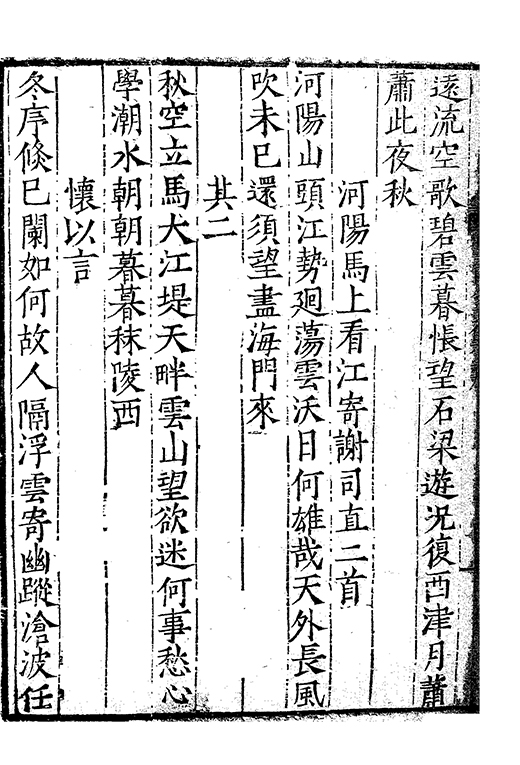 遠流空歌碧雲暮悵望石梁遊況復西津月蕭
蕭此夜秋
河陽馬上看江寄謝司直二首
河陽山頭江勢廻蕩雲沃日何雄哉天外長風
吹未已還須望盡海門來
其二
秋空立馬大江堤天畔雲山望欲迷何事愁心
學潮水朝朝暮暮秣陵西
懷以言
冬序倐已闌如何故人隔浮雲寄幽蹤滄波任